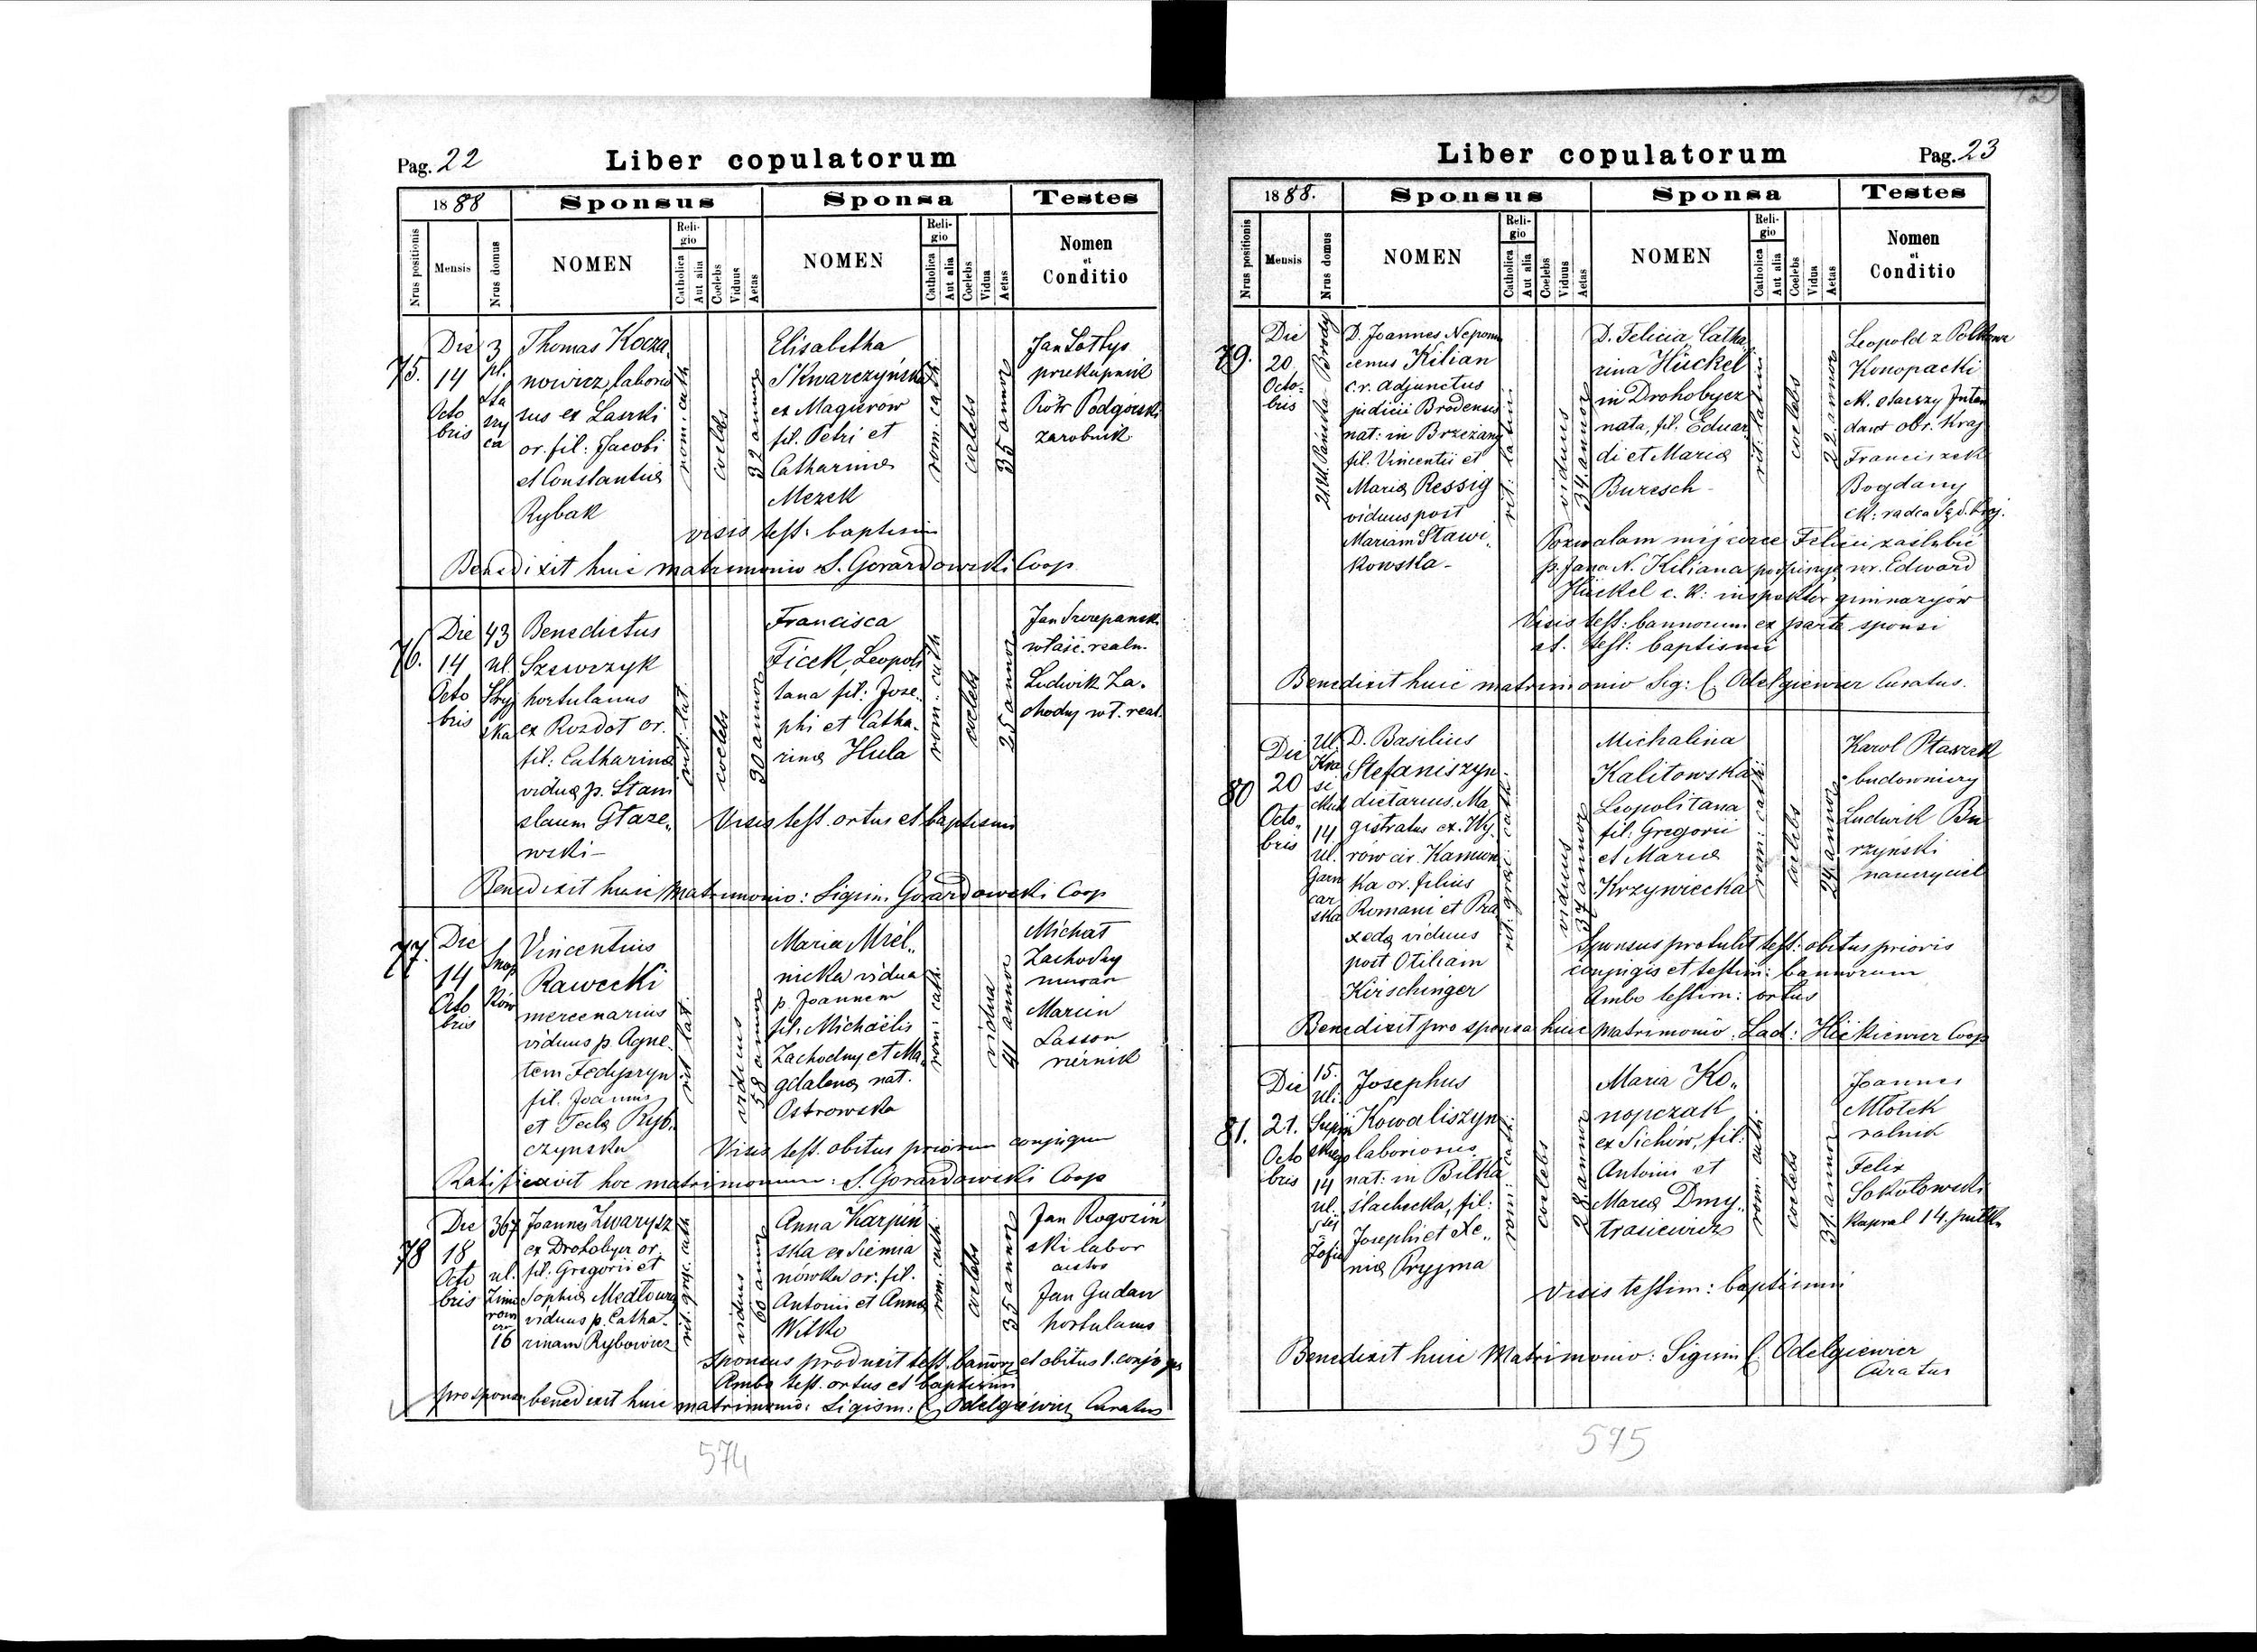 Pag. 22
Liber copulatorum
1888
Sponsus
Sponsa
Testes
Nrus positionis
Mensis
Nrus domus
NOMEN
Religio
Catholica
Aut alia
Coelebs
Viduus
Aetas
NOMEN
Religio
Catholica
Aut alia
Coelebs
Vidua
Aetas
Nomen
et
Conditio
75.
Die
14
Octo
bris
3
pl.
Sta
szy
ca
Thomas Kocza
nowicz, laborio
sus ex Laszki
or. fil: Jacobi
et Constantia
Rybak
rom: cath
coelebs
32 annor
Elisabetha
Skwarczyńska
ex Magierow
fil. Petri et
Catharina
Mezek
rom: cath.
coelebs
35 annor
Jan Sołtys
przekupnik
Piotr Podgórski
zarobnik
visis test: baptismi
Benedixit huic matrimonio S. Gorazdowski Coop
76.
Die
14
Octo
bris
43
ul.
Stryj
ska
Benedictus
Szewczyk
hortulanus
ex Rozdoł or.
fil: Catharina
vidua p. Stani
slaum Głaze„
wski –
rit: lat.
coelebs
30 annor
Francisca
Ficek, Leopoli
tana fil: Jose
phi et Catha„
rina Hula
rom: cath
coelebs
25 annor
Jan Szczepansk.
właśc. realn.
Ludwik Za.
chodny wł. real.
Visis test. ortus et baptismi
Benedixit huic Matrimonio: Sigism Gorazdowski Coop
77.
Die
14
Octo
bris
Snop
ków
Vincentius
Rawecki
mercenarius
viduus p. Agne.
tem Fedyszyn
fil. Joannis
et Tecla Ryb.
czynska
rit lat.
viduus
58 annor
Maria Miel„
nicka vidua
p Joannem
fil: Michaëlis
Zachodny et Ma
gdalena nat.
Ostrowska
rom: cath
vidua
41 annor
Michał
Zachodny
murar
Marcin
Lasson
riernik
Visis test. obitus priorum conjugum
Ratificavit hoc matrimonium: S. Gorazdowski Coop
78
Die
18
Octo
bris
367
ul.
Zimo
rowi
cza
16
Joannes Zwarysz
ex Drohobycz or.
fil. Gregorii et
Sophia Medłowy
viduus p. Catha„
rinam Rybowicz
rit. grac. cath
viduus
60 annor
Anna Karpin
ska ex Siemia
nówka or. fil.
Antonii et Anna
Witko
rom. cath.
coelebs
35 annor
Jan Rogoziń
ski labor
Jan Gudan
hortulanus
Sponsus produxit test. bannor et obitus 1. conjugis
Ambo test. ortus et baptismi
pro sponsa benedixit huic matrimonio: Sigism: C. Odelgiewicz Curatus
574
Liber copulatorum
Pag. 23
1888.
Sponsus
Sponsa
Testes
Nrus positionis
Mensis
Nrus domus
NOMEN
Religio
Catholica
Aut alia
Coelebs
Viduus
Aetas
NOMEN
Religio
Catholica
Aut alia
Coelebs
Vidua
Aetas
Nomen
et
Conditio
79.
Die
20
Octo„
bris
Pańska Brody
D. Joannes Nepomu
cenus Kilian
c.r. adjunctus
judicii Brodensis
nat: in Brzeżany
fil. Vincentii et
Maria Ressig
viduus post
Mariam Stawi„
kowska –
rit: latini
viduus
34 annor
D. Felicia Catha
rina Hückel
in Drohobycz
nata, fil. Eduar
di et Maria
Buresch –
rit: latini
coelebs
22 annor
Leopold z
Konopacki
ck. starszy Inten
dant obr. Kraj
Franciszek
Bogdany
ck: radca Sąd. kraj.
Pozwalam mej córce Felicii zaślubić
p. Jana N. Kiliana podpisuje mr. Edward
Hückel c. k: inspektor gimnazyów
Visis test: bannorum ex parte sponsi
et. test: baptismi
Benedixit huic matrimonio Sig: C. Odelgiewicz Curatus.
80
Die
20
Octo„
bris
Ul.
Kra
si
14
ul.
Garn
car
ska
D. Basilius
Stefaniszyn
dietarius, Ma
gistratus ex. Wy
rów cir. Kamion
ka or. filius
Romani et Pra
xeda viduus
post Otiliam
Kirschinger
rit: graci cath
viduus
37 annor
Michalina
Kalitowska
Leopolitana
fil: Gregorii
et Maria
Krzywiecka
rom: cath:
coelebs
24 annor
Karol Ptaszek
budowniczy
Ludwik Bu
rzyński
nauczyciel
Sponsus protulit test: obitus prioris
conjugis et testim: bannorum
Ambo testim: ortus
Benedixit pro sponsa huic Matrimonio: Lad: Hićkiewicz Coop
81.
Die
21.
Octo
bris
15.
ul:
skiego
14
ul.
Zofii
Josephus
Kowaliszyn
laboriosus
nat: in Biłka
ślachecka, fil:
Josephi et Xe„
nia Pryjma
rom: cath:
coelebs
28 annor
Maria Ko„
nopczak
ex Sichów, fil:
Antonii et
Maria Dmy„
trasiewicz
rom: cath:
coelebs
31 annor
Joannes
Młotek
rolnik
Felix
Sokołowski
kapral 14. pułk.
Visis testim: baptismi
Benedixit huic Matrimonio: Sigism C. Odelgiewicz
Curatus
575